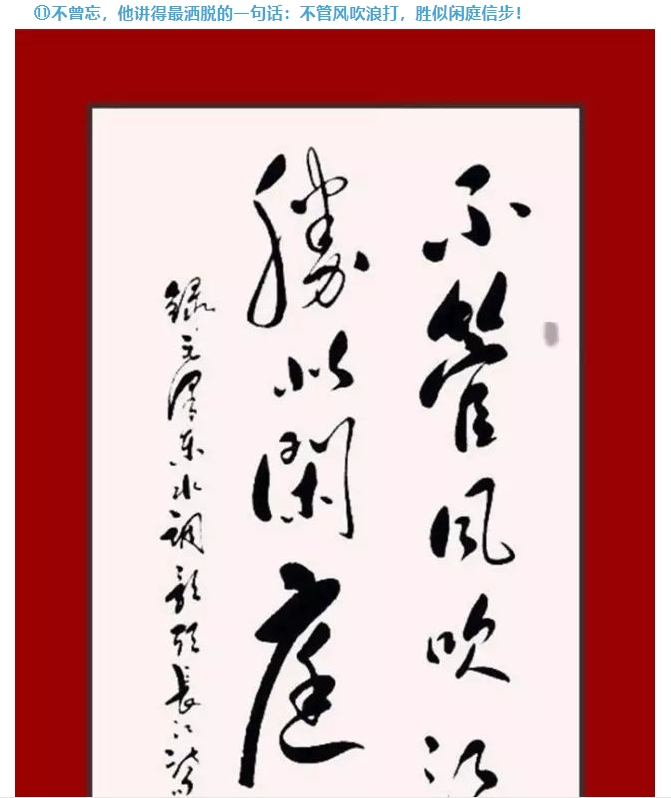 ⑪不曾忘，他讲得最洒脱的一句话：不管风吹浪打，胜似闲庭信步！
不管風吹浪
勝似閑庭
録毛澤东水調歌頭長江